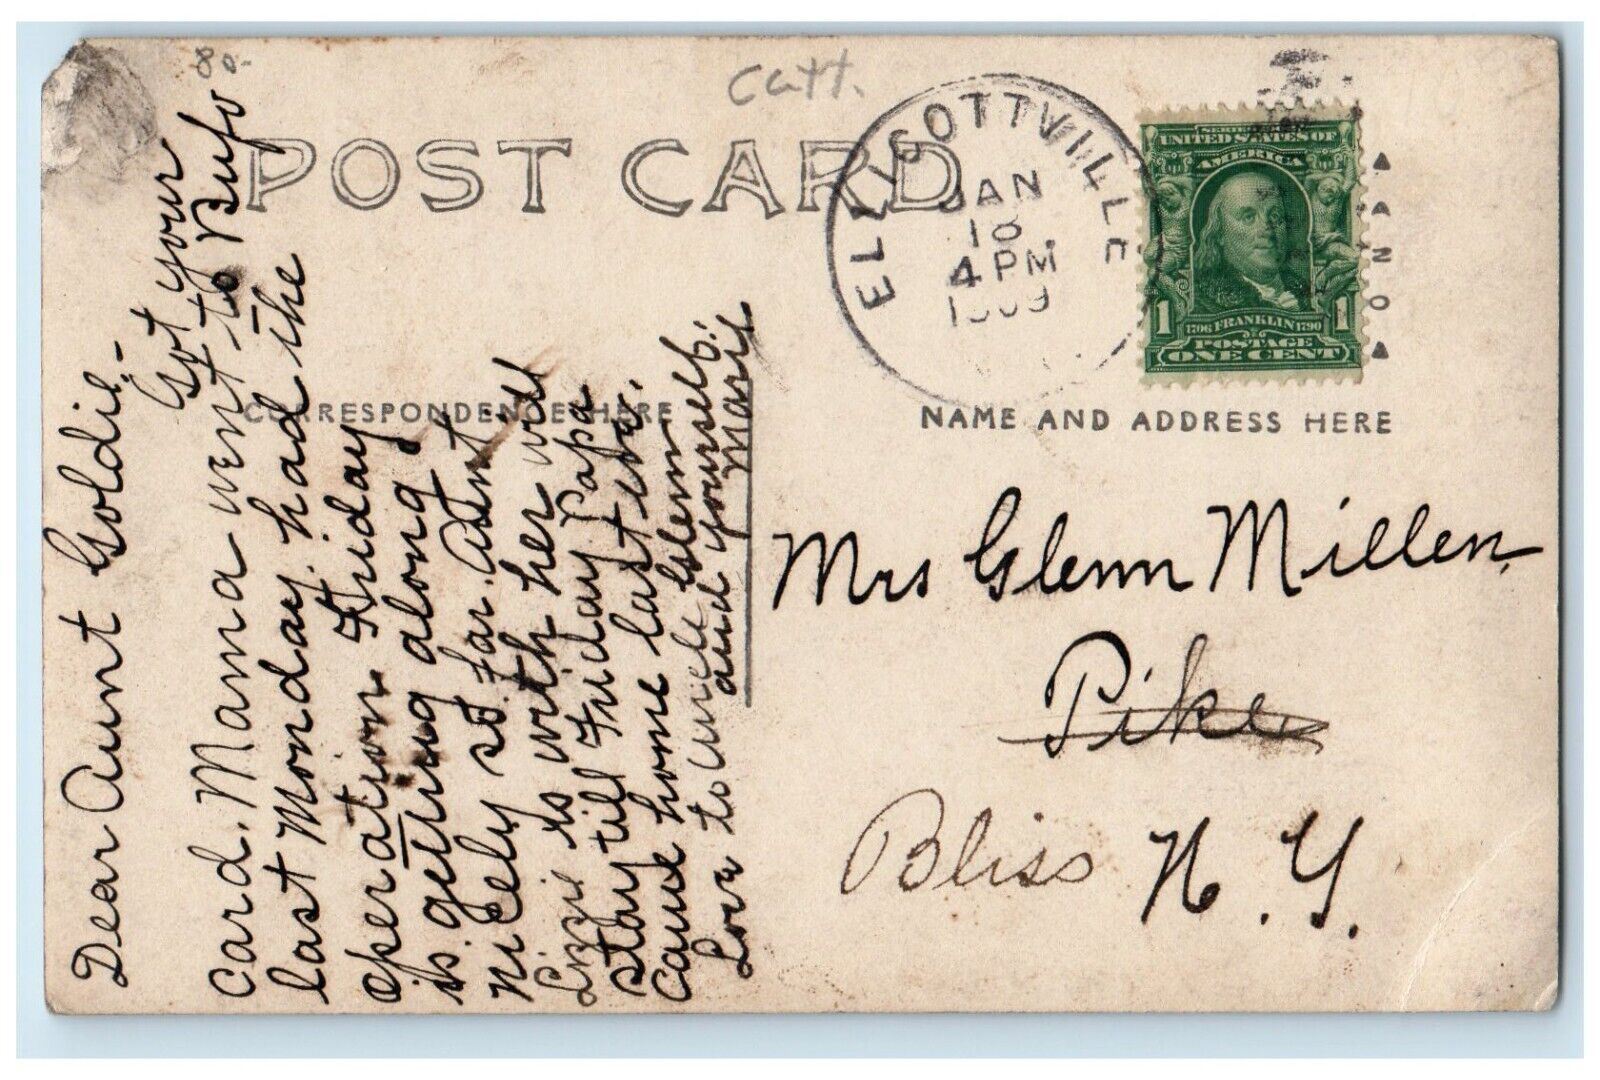 80-
Catt.
POST CARD
ELLICOTTVILLE
JAN
18
4 PM
1909
SERIES 1902
UNITED STATES OF
AMERICA
1706 FRANKLIN 1790
1
1
POSTAGE
ONE CENT
CORRESPONDENCE HERE
NAME AND ADDRESS HERE
Dear Aunt Goldie-
Got your
card. Mama went to Bufo
last Monday. had the
operation Friday
is getting along
nicely so far. Aunt
Lizzie is with her will
stay till Friday Papa
came home last eve.
Love to uncle Glenn.
and yourself.
Marie
Mrs Glenn Millen.
Pike
Bliss N. Y.